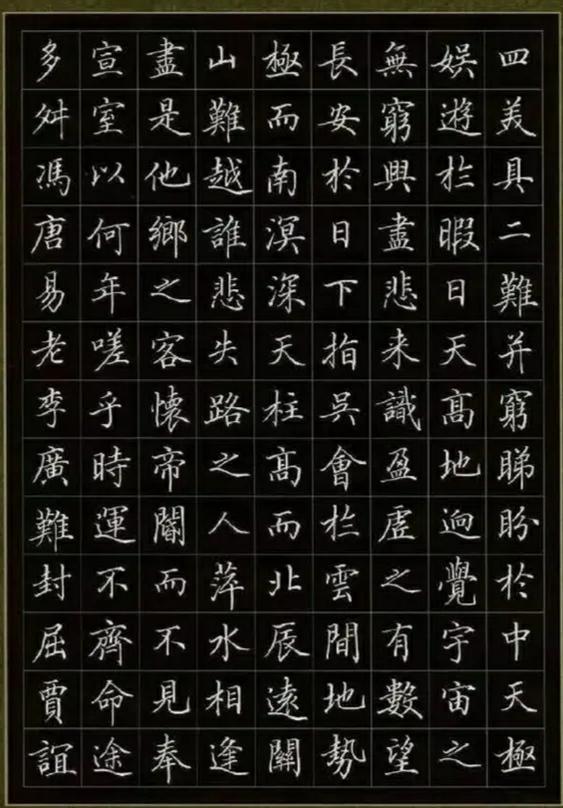 四美具二難并窮睇盼於中天極
娛遊扵暇日天髙地逈覺宇宙之
無窮興盡悲来識盈虛之有數望
長安於日下指吳會扵雲間地勢
極而南溟深天柱髙而北辰遠關
山難越誰悲失路之人萍水相逢
盡是他鄉之客懷帝閽而不見奉
宣室以何年嗟乎時運不齊命途
多舛馮唐易老李廣難封屈賈誼